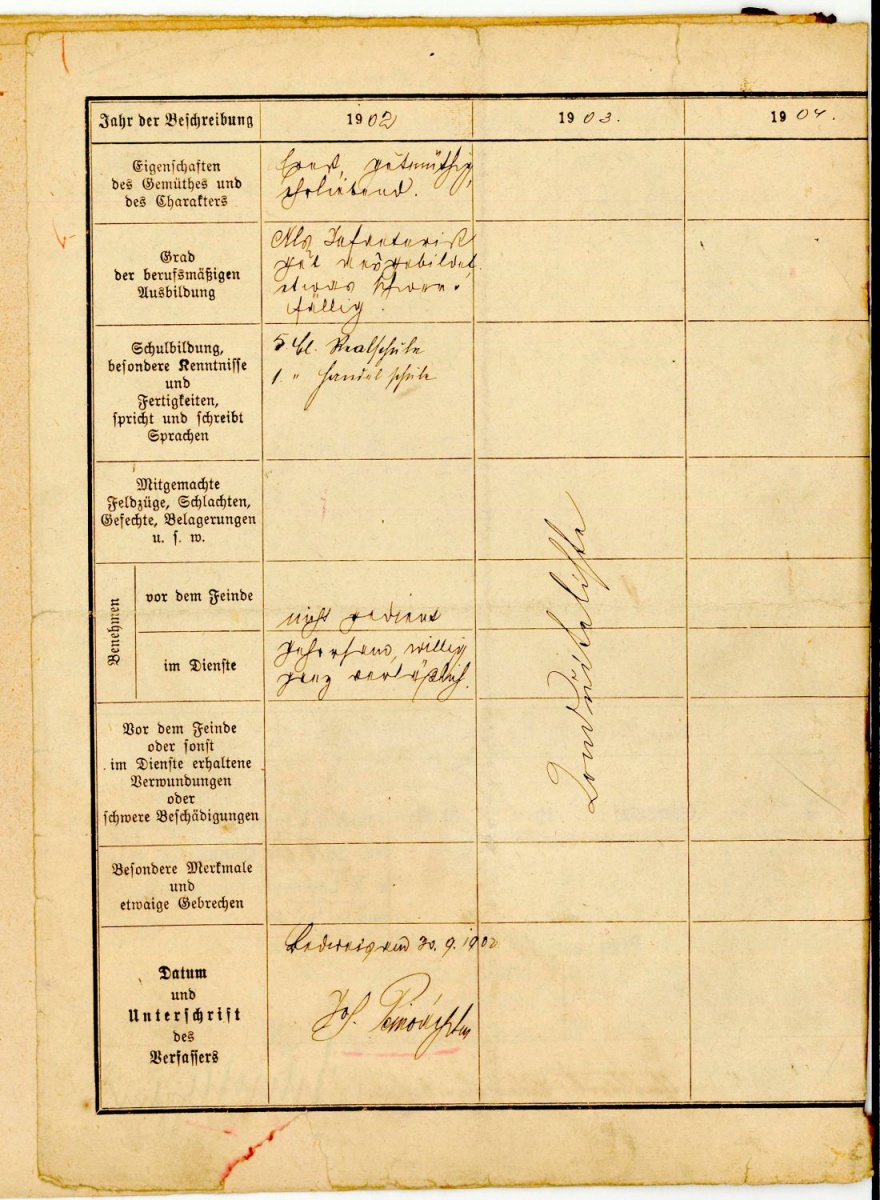 Jahr der Beschreibung
1902
1903.
1904.
Eigenschaften
des Gemüthes und
des Charakters
gutmüthig,
ehrliebend.
Grad
der berufsmäßigen
Ausbildung
Als Infanterist
gut ausgebildet,
etwas schwer-
fällig.
Schulbildung,
besondere Kenntnisse
und
Fertigkeiten,
spricht und schreibt
Sprachen
5. Cl. Realschule
1. " Handelschule
Mitgemachte
Feldzüge, Schlachten,
Gefechte, Belagerungen
u. s. w.
Benehmen
vor dem Feinde
nicht gedient
im Dienste
gehorsam, willig
ganz verläßlich.
Vor dem Feinde
oder sonst
im Dienste erhaltene
Verwundungen
oder
schwere Beschädigungen
Besondere Merkmale
und
etwaige Gebrechen
Datum
und
Unterschrift
des
Verfassers
30. 9. 1902
Jos.